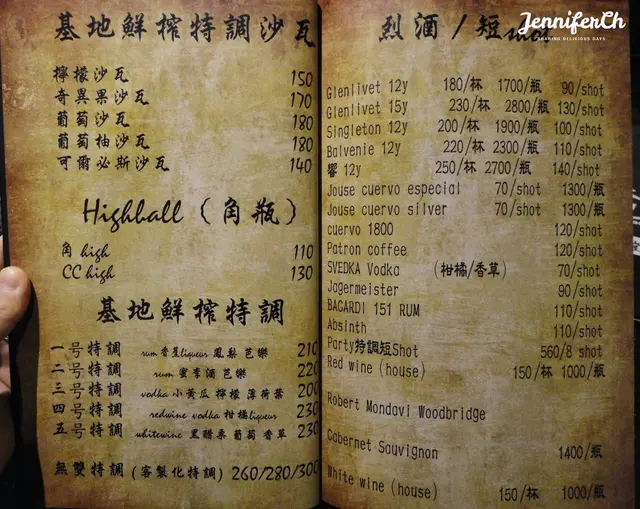 基地鮮搾特調沙瓦
檸檬沙瓦 150
奇異果沙瓦 170
葡萄沙瓦 180
葡萄柚沙瓦 180
可爾必斯沙瓦 140
Highball (角瓶)
角 high 110
CC high 130
基地鮮搾特調
一号特調 rum 香蕉liqueur 鳳梨 芭樂 210
二号特調 rum 蜜李酒 芭樂 220
三号特調 vodka 小黃瓜 檸檬 薄荷葉 200
四号特調 redwine vodka 柑橘liqueur 230
五号特調 whitewine 黑醋栗 葡萄 香草 230
無雙特調 (客製化特調) 260/280/300
JenniferCh
SHARING DELICIOUS DAYS
烈酒/短shot
Glenlivet 12y 180/杯 1700/瓶 90/shot
Glenlivet 15y 230/杯 2800/瓶 130/shot
Singleton 12y 200/杯 1900/瓶 100/shot
Balvenie 12y 220/杯 2300/瓶 110/shot
響 12y 250/杯 2700/瓶 140/shot
Jouse cuervo especial 70/shot 1300/瓶
Jouse cuervo silver 70/shot 1300/瓶
cuervo 1800 120/shot
Patron coffee 120/shot
SVEDKA Vodka (柑橘/香草) 70/shot
Jagermeister 90/shot
BACARDI 151 RUM 110/shot
Absinth 110/shot
Party特調短Shot 560/8 shot
Red wine (house) 150/杯 1000/瓶
Robert Mondavi Woodbridge
Cabernet Sauvignon 1400/瓶
White wine (house) 150/杯 1000/瓶